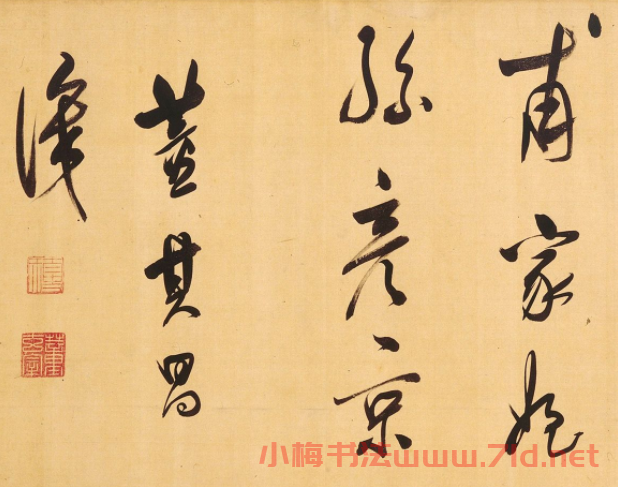 甫家姪
孫彥京
董其昌
識
小梅书法www.71d.net